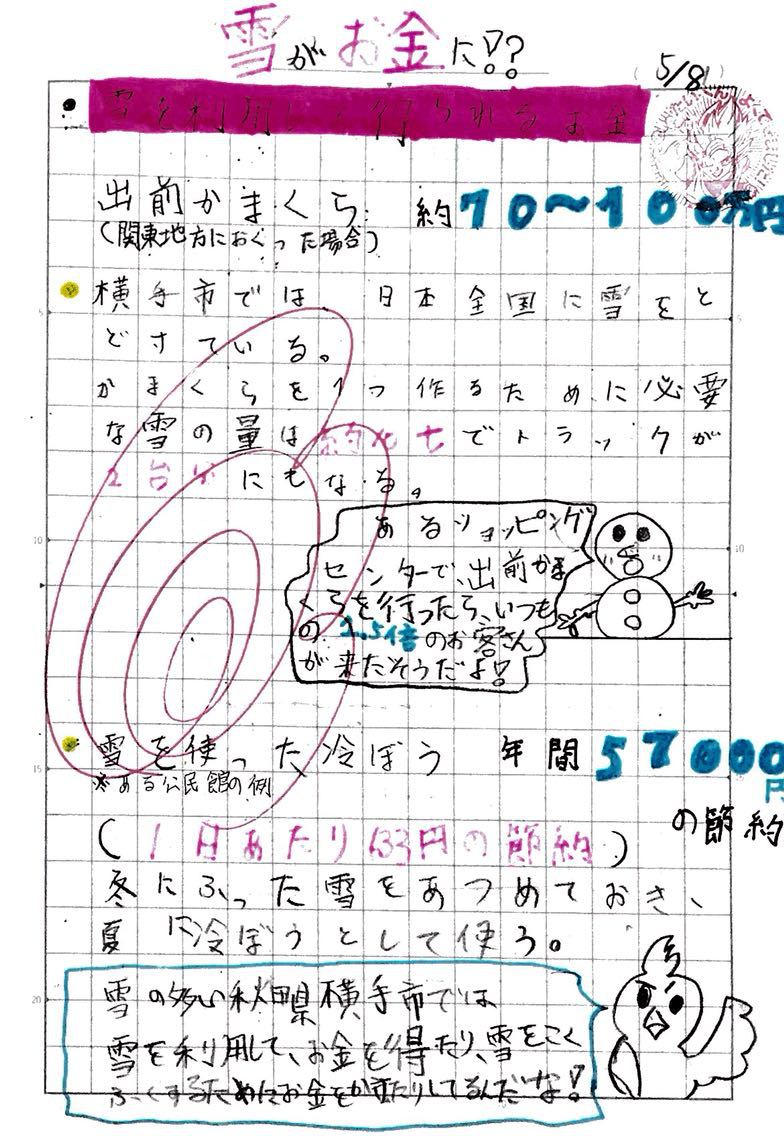 雪がお金に!?
(5/8)
雪を利用して得られるお金
出前かまくら 約70〜100万円
(関東地方におくった場合)
横手市では 日本全国に雪をと
どすている。
かまくらを1つ作るために必要
な雪の量は でトラックが
2台分にもなる。
あるショッピング
センターで、出前かま
くらを行ったら、いつも
の2.5倍のお客さん
が来たそうだよ!
雪を使った冷ぼう 年間57000
円
の節約
※ある公民館の例
(1日あたり633円の節約)
冬にふった雪をあつめておき、
夏に冷ぼうとして使う。
雪の多い秋田県横手市では
雪を利用して、お金を得たり、雪をこく
ふくするためにお金をかけたりしてるんだな!